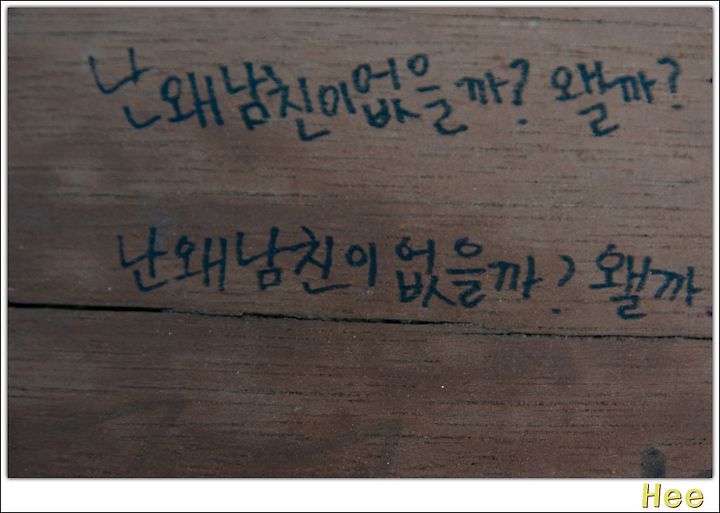 난 왜 남친이 없을까? 왤까?
난 왜 남친이 없을까? 왤까
Hee